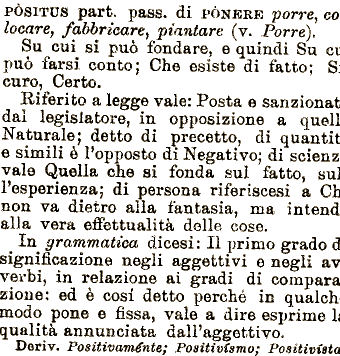 PÒSITUS part. pass. di PÒNERE porre, co
locare, fabbricare, piantare (v. Porre).
Su cui si può fondare, e quindi Su cu
può farsi conto; Che esiste di fatto; S
curo, Certo.
Riferito a legge vale: Posta e sanzionat
dal legislatore, in opposizione a quell
Naturale; detto di precetto, di quantit
e simili è l'opposto di Negativo; di scienz
vale Quella che si fonda sul fatto, sul
l'esperienza; di persona riferiscesi a Ch
non va dietro alla fantasia, ma intend
alla vera effettualità delle cose.
In grammatica dicesi: Il primo grado d
significazione negli aggettivi e negli av
verbi, in relazione ai gradi di compara
zione: ed è cosí detto perché in qualch
modo pone e fissa, vale a dire esprime l
qualità annunciata dall'aggettivo.
Deriv. Positivaménte; Positivísmo; Positivísta